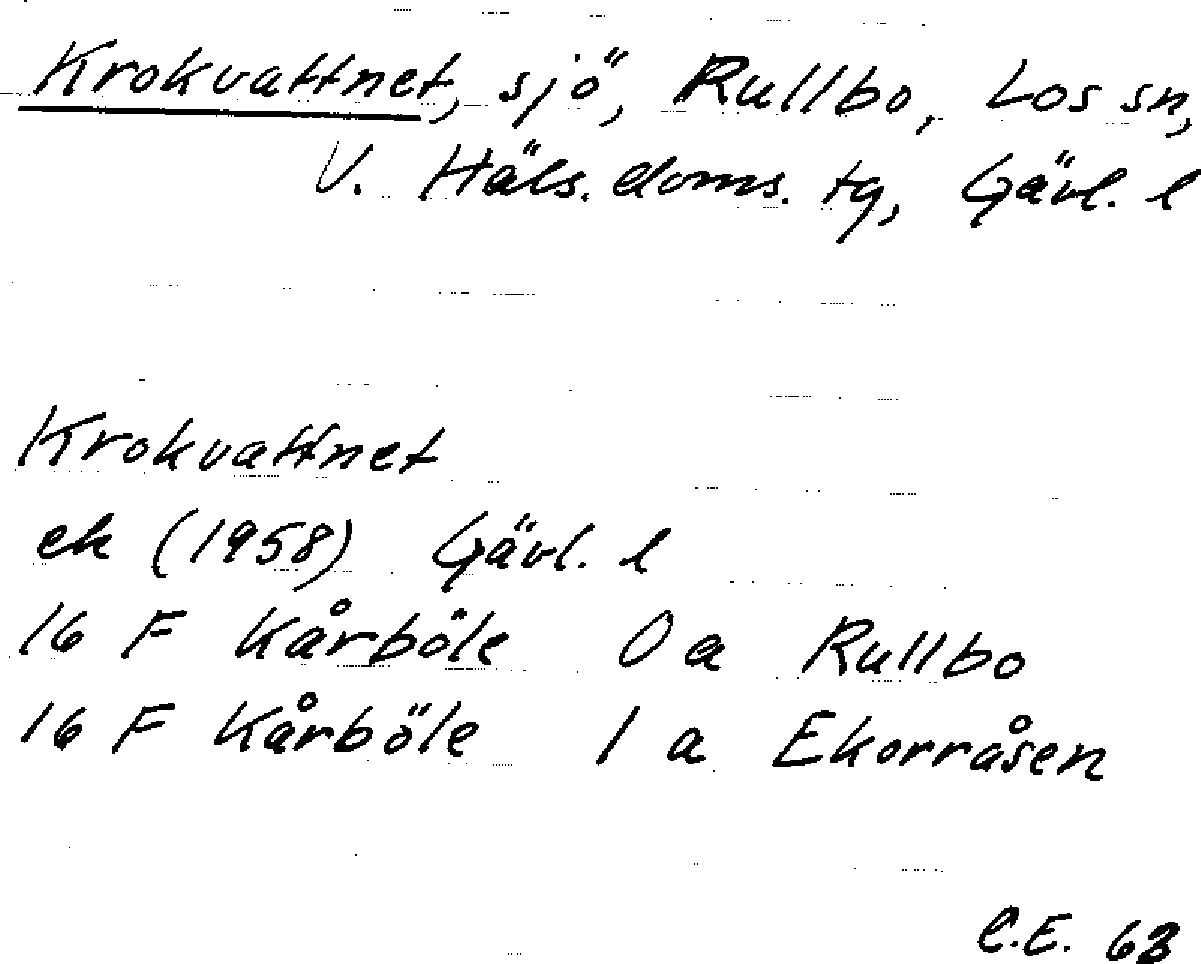 Krokvattnet, sjö, Rullbo, Los sn,
V. Häls. doms. tg, Gävl. l
Krokvattnet
ek (1958) Gävl. l
16 F Kårböle 0 a Rullbo
16 F Kårböle 1 a Ekorråsen
C.E. 63